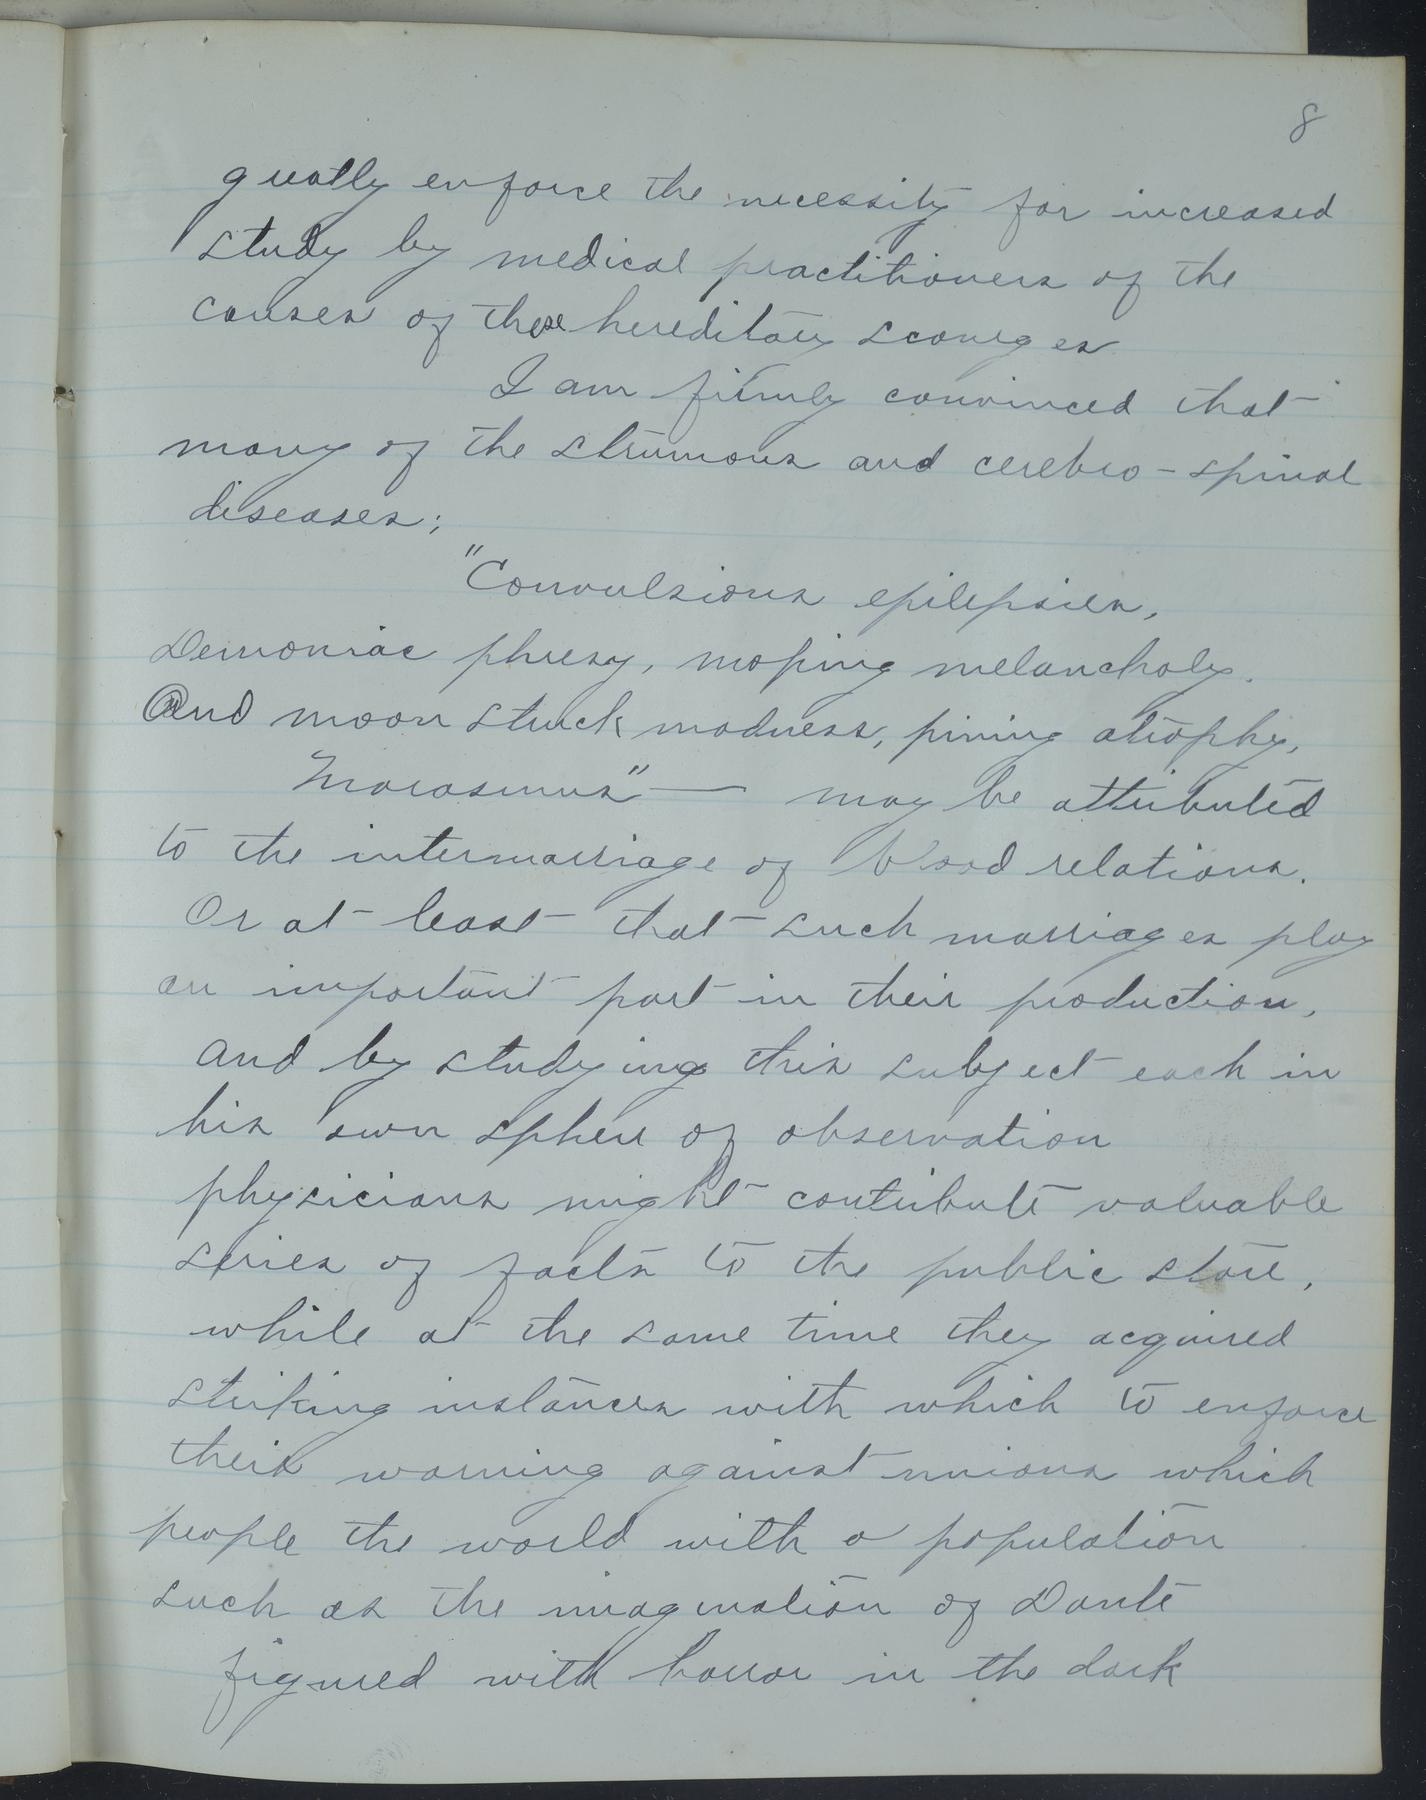 8
greatly enforce the necessity for increased
study by medical practitioners of the
causes of these hereditary scourges
I am firmly convinced that
many of the strumous and cerebro-spinal
diseases;
"Convulsions epilepsies,
Demoniac phrezy, moping melancholy.
And moon struck madness, pining atrophy,
"Marasmus" — may be attributed
to the intermarriage of blood relations.
Or at least that such marriages play
an important part in their production,
and by studying this subject each in
his own sphere of observation
physicians might contribute valuable
series of facts to the public store,
while at the same time they acquired
striking instances with which to enforce
their warning against unions which
people the world with a population
such as the imagination of Dante
figured with horror in the dark